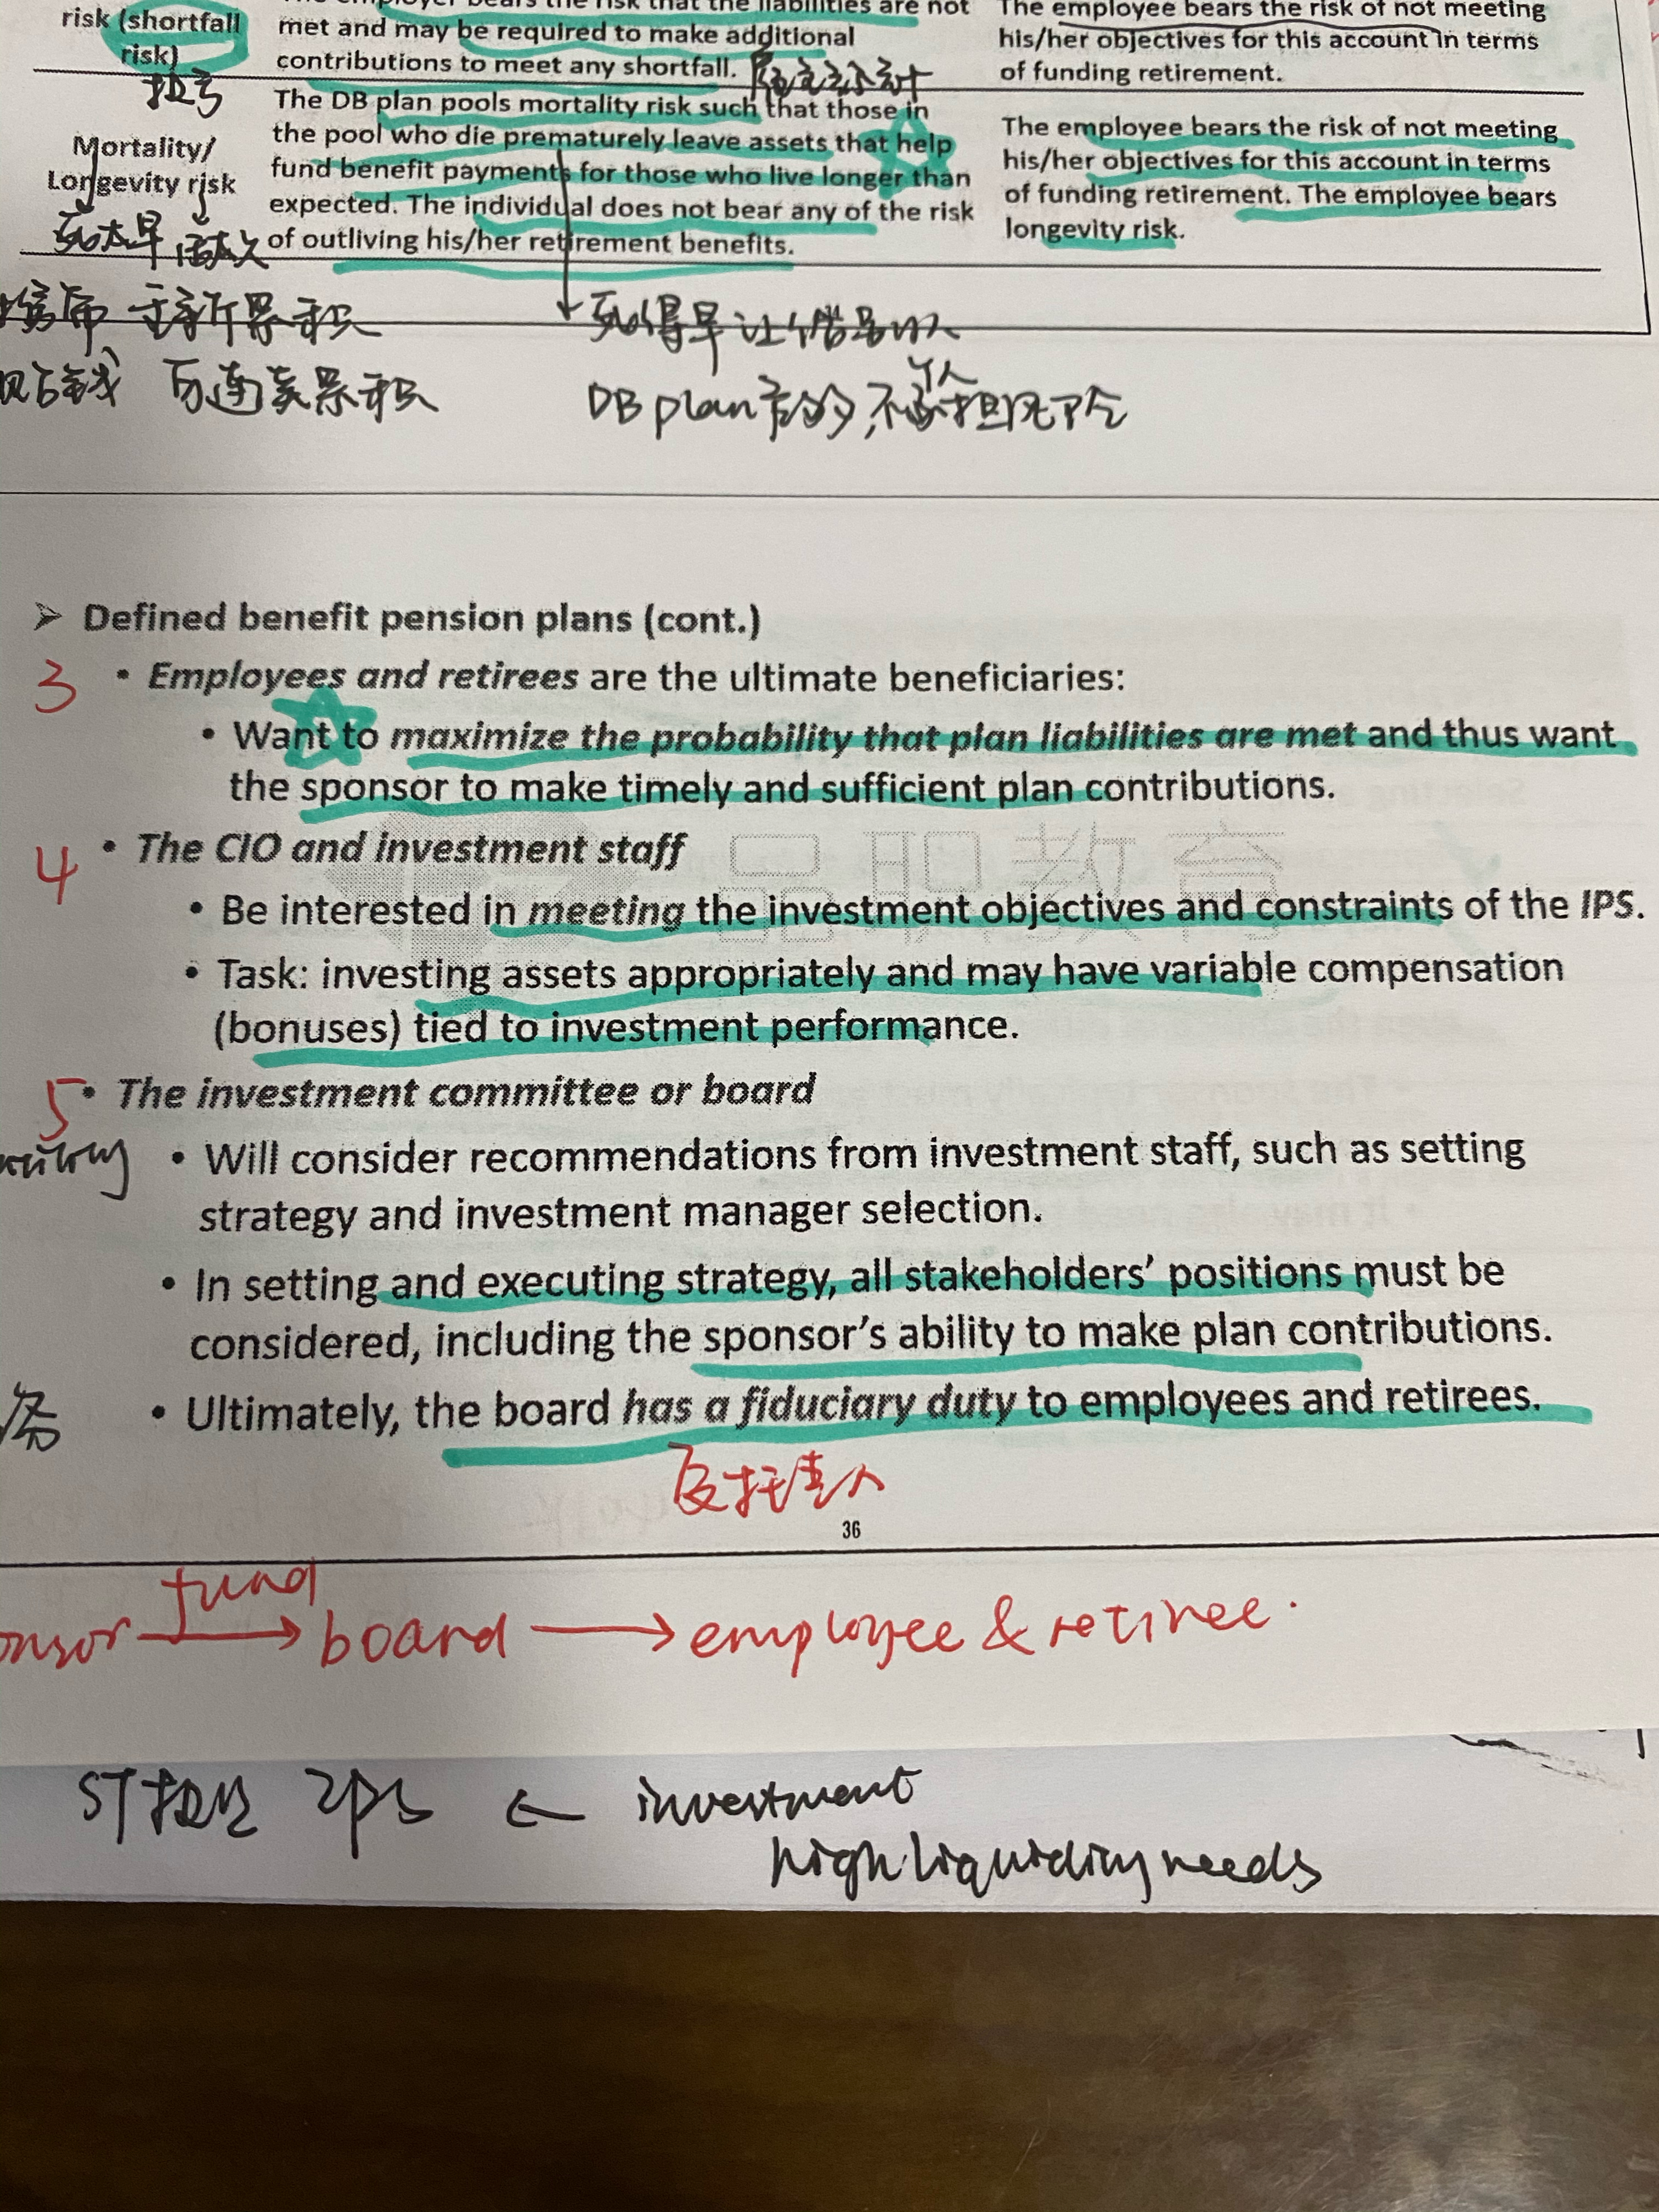 risk (shortfall
risk)
met and may be required to make additional
contributions to meet any shortfall.
The employee bears the risk of not meeting
his/her objectives for this account in terms
of funding retirement.
Mortality/
Longevity risk
死太早 活太久
The DB plan pools mortality risk such that those in
the pool who die prematurely leave assets that help
fund benefit payments for those who live longer than
expected. The individual does not bear any of the risk
of outliving his/her retirement benefits.
The employee bears the risk of not meeting
his/her objectives for this account in terms
of funding retirement. The employee bears
longevity risk.
死得早
DB plan
➢ Defined benefit pension plans (cont.)
3 • Employees and retirees are the ultimate beneficiaries:
• Want to maximize the probability that plan liabilities are met and thus want
the sponsor to make timely and sufficient plan contributions.
4 • The CIO and investment staff
品职教育
• Be interested in meeting the investment objectives and constraints of the IPS.
• Task: investing assets appropriately and may have variable compensation
(bonuses) tied to investment performance.
5 • The investment committee or board
• Will consider recommendations from investment staff, such as setting
strategy and investment manager selection.
• In setting and executing strategy, all stakeholders’ positions must be
considered, including the sponsor’s ability to make plan contributions.
• Ultimately, the board has a fiduciary duty to employees and retirees.
36
fund
onsor → board → employee & retiree.
← investment
high liquidity needs